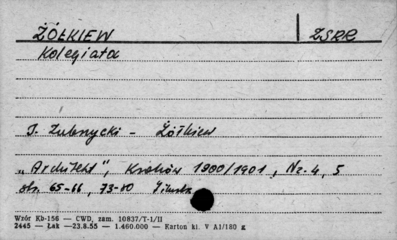 ŻÓŁKIEW ZSRR
Kolegiata
J. Zubrzycki - Żółkiew
„Architekt", Kraków 1900/1901, Nr. 4, 5
str. 65-66, 73-80
Wzór Kb-156 — CWD, zam. 10837/T-1/II
2445 — Łak —23.8.55 — 1.460.000 — Karton kl. V A1/180 g